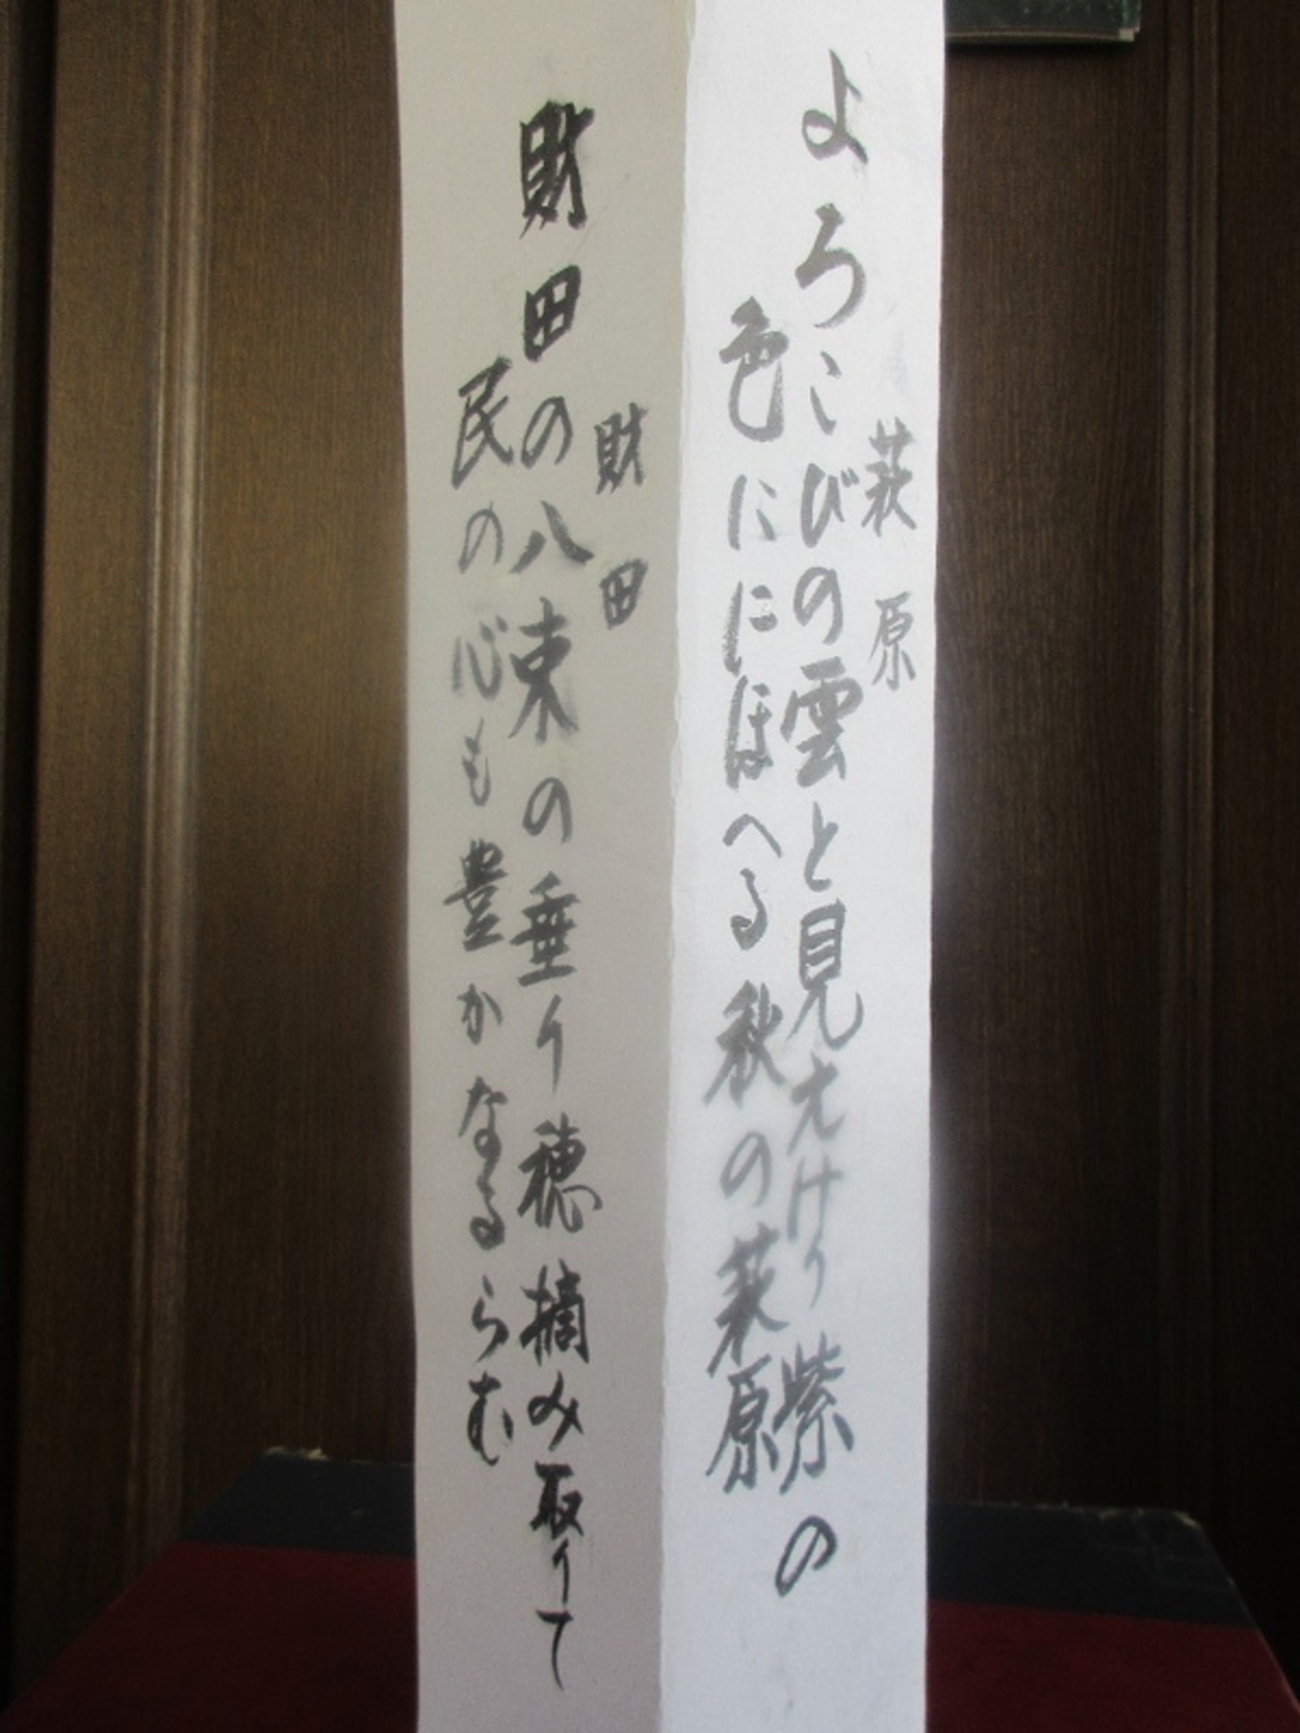 萩原
よろこびの雲と見えけり紫の
色ににほへる秋の萩原
財田
財田の八束の垂り穂摘み取りて
民の心も豊かなるらむ